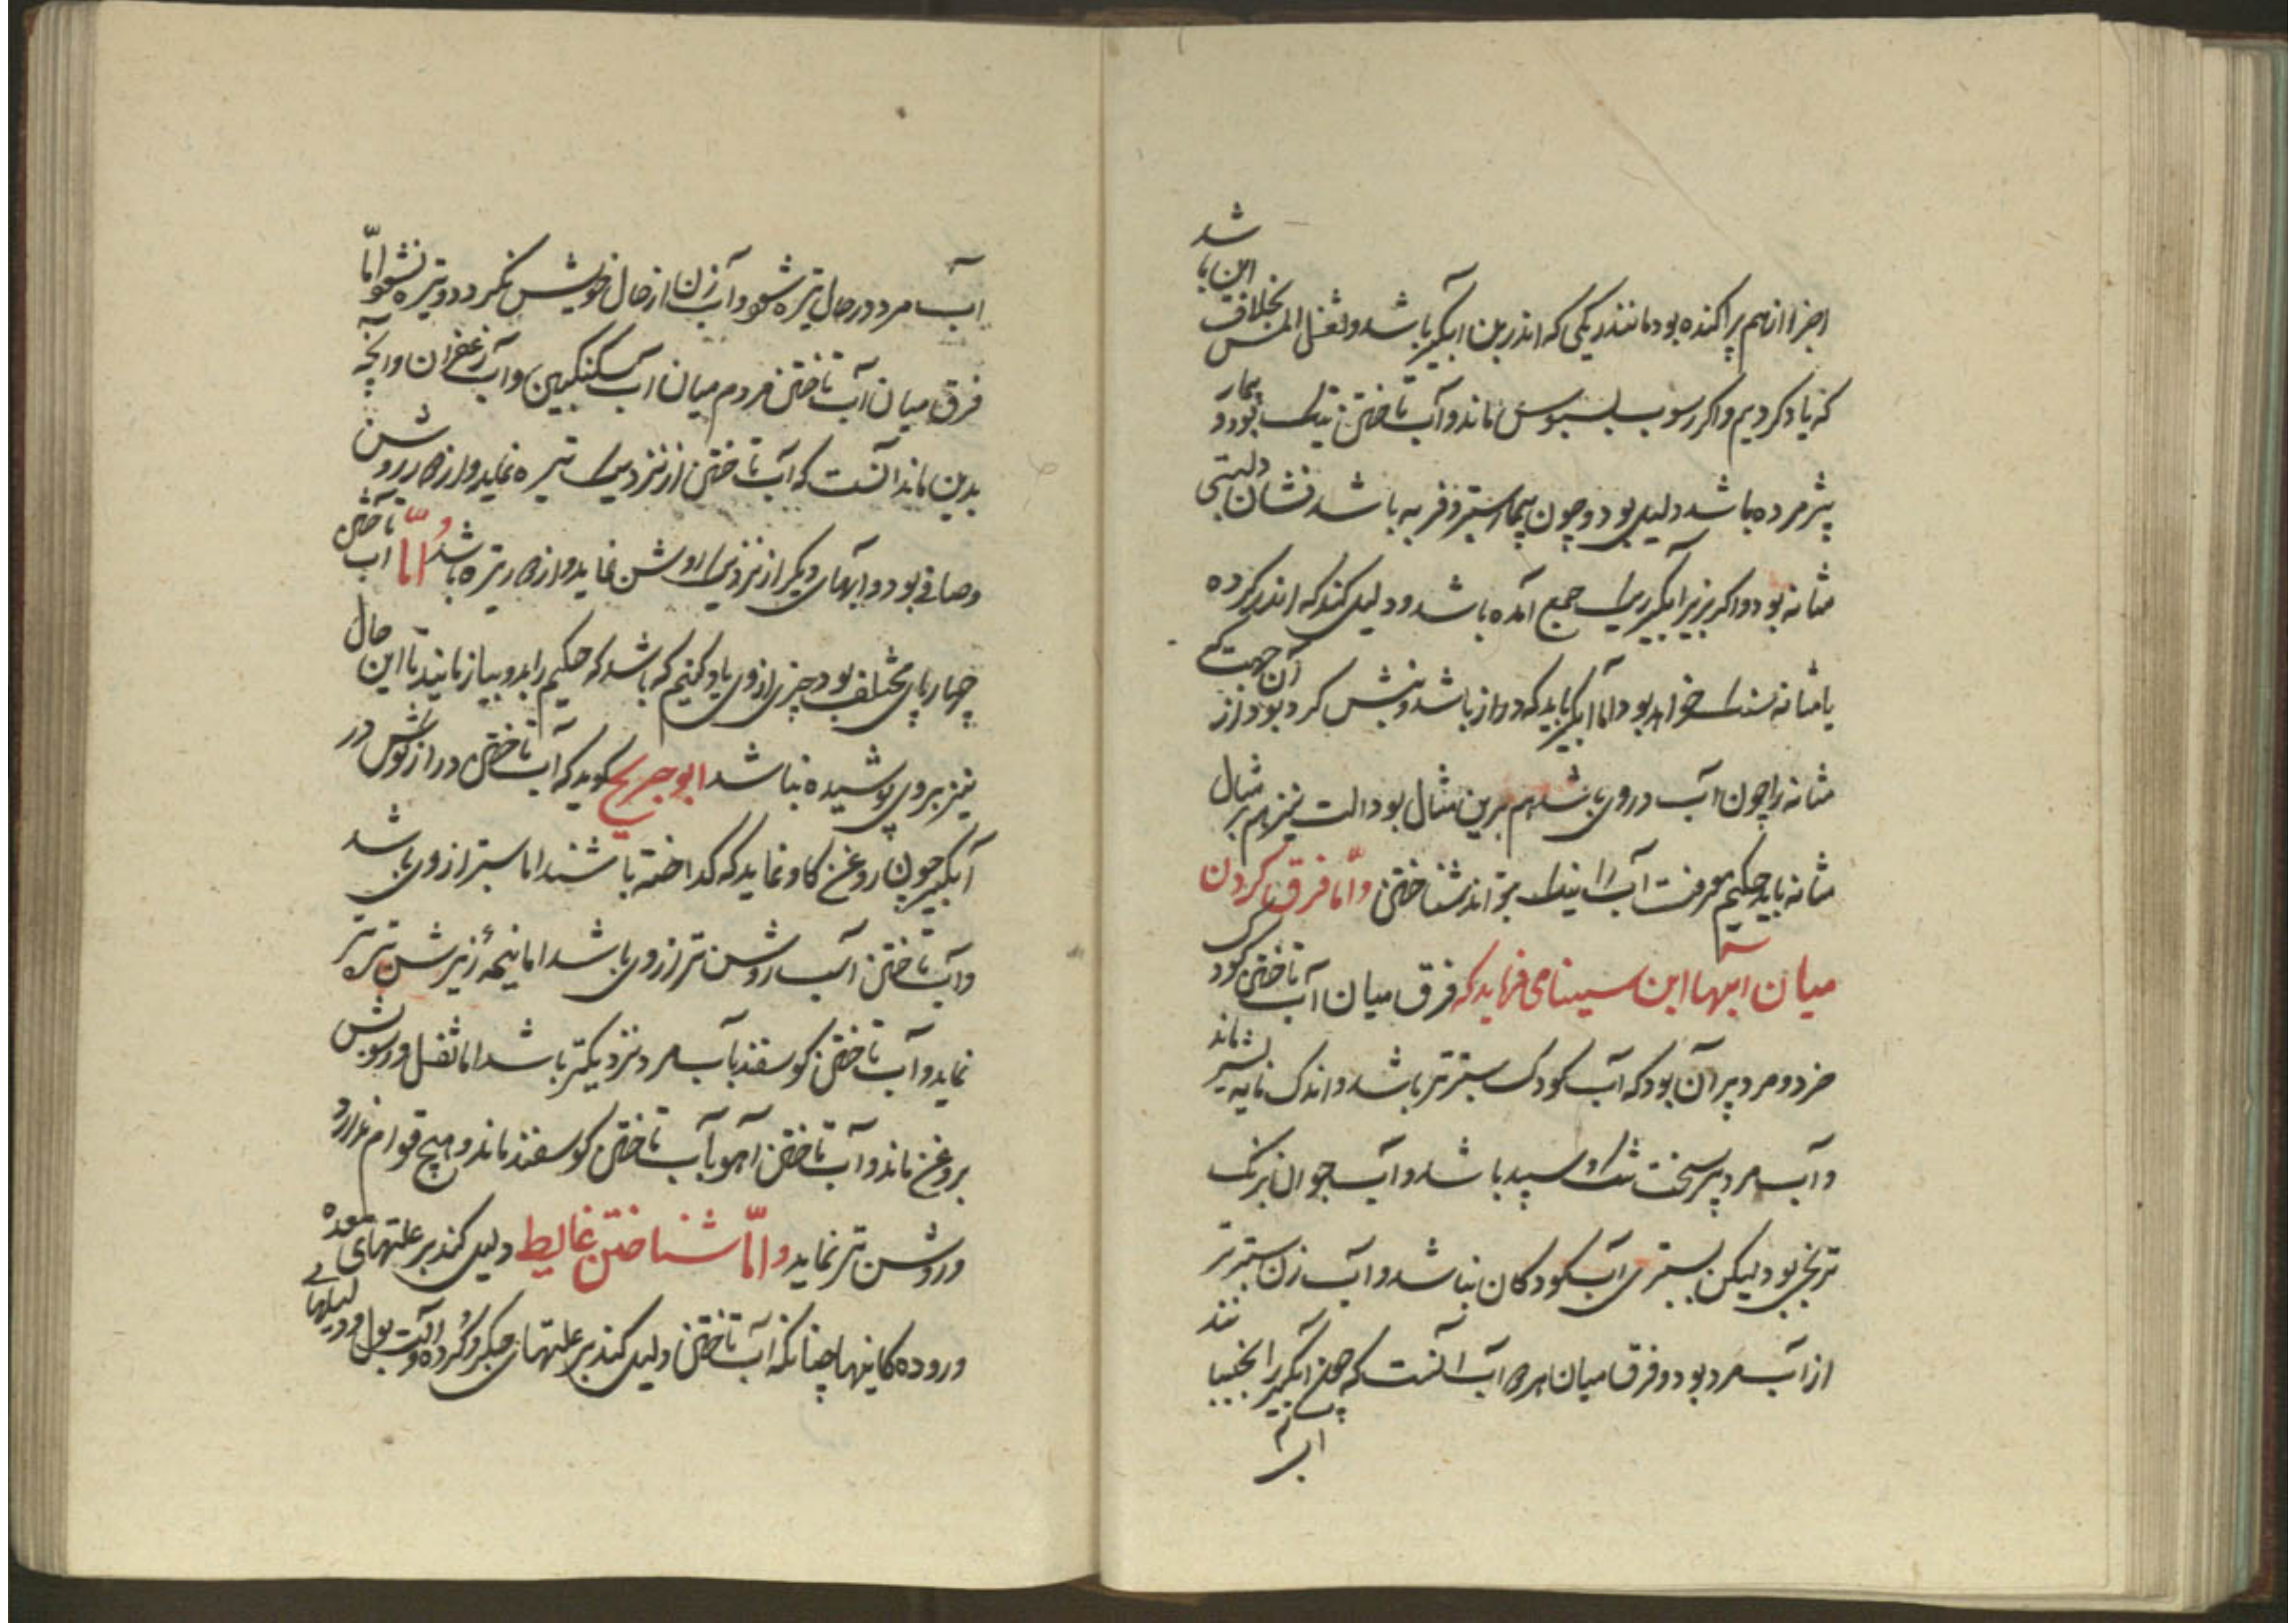 اجزا از هم پراکنده بود مانند ریگی که اندر بن آبگیر باشد و ثفل المس بخلاف این باشد
که یاد کردیم و اگر رسوب بسبوس ماند و آب تاختن بود و بیمار
پژمرده باشد دلیل بود و چون بیمار ستبر و فربه باشد نشان
مثانه بود و اگر بزیر آبگیر ریک جمع آمده باشد و دلیل کند که اندر کرده
یا مثانه سنک خواهد بود و اما آبگیر باید که دراز باشد و کرد بود از آن جهت که
مثانه را چون آب در وی باشد هم برین مثال بود و الت نیز هم بر مثال
مثانه باید حکیم معرفت آب را نیک بتواند شناختن و اما فرق کردن
میان آبها ابن سینا می فرماید که فرق میان آب تاختن کودک
خرد و مرد پیر آن بود که آب کودک ستبرتر باشد و اندک مایه بشیر ماند
و آب مرد پیر سخت تنک و سپید باشد و آب جوان برنک
ترنجی بود لیکن بستبری آب کودکان نباشد و آب زن ستبرتر
از آب مرد بود و فرق میان هر دو آب آنست که چون آبگیر را بجنبانند
آب
آب مرد در حال تیره شود و آب زن از حال خویش نکردد و تیره نشود اما
فرق میان آب تاختن مردم میان آب سکنکبین و آب زعفران و آنچه
بدین ماند آنست که آب تاختن از نزدیک تیره نماید و از دور روشن
و صافی بود و آبهای دیکر از نزدیک روشن نماید و از دور تیره باشد و اما آب تاختن
چهارپای مختلف بود چیزی از وی یاد کنیم که باشد که حکیم را بدو بیازمایند تا این حال
نیز بروی پوشیده نباشد ابو جریح کوید که آب تاختن درازکوش در
آبگیر چون روغن کاو نماید که کداخته باشند اما ستبر از وی باشد
و آب تاختن اسب روشن تر از وی باشد اما نیمه زیرش تیره تر
نماید و آب تاختن کوسفند بآب مرد نزدیکتر باشد اما ثفل و رسوبش
بروغن ماند و آب تاختن آهو بآب تاختن کوسفند ماند و هیچ قوام ندارد
و روشن تر نماید و اما شناختن غایط دلیل کند بر علتهای معده
و روده کاینها چنانکه آب تاختن دلیل کند بر علتهای جکر و کرده و آلت بول و دلیلهای